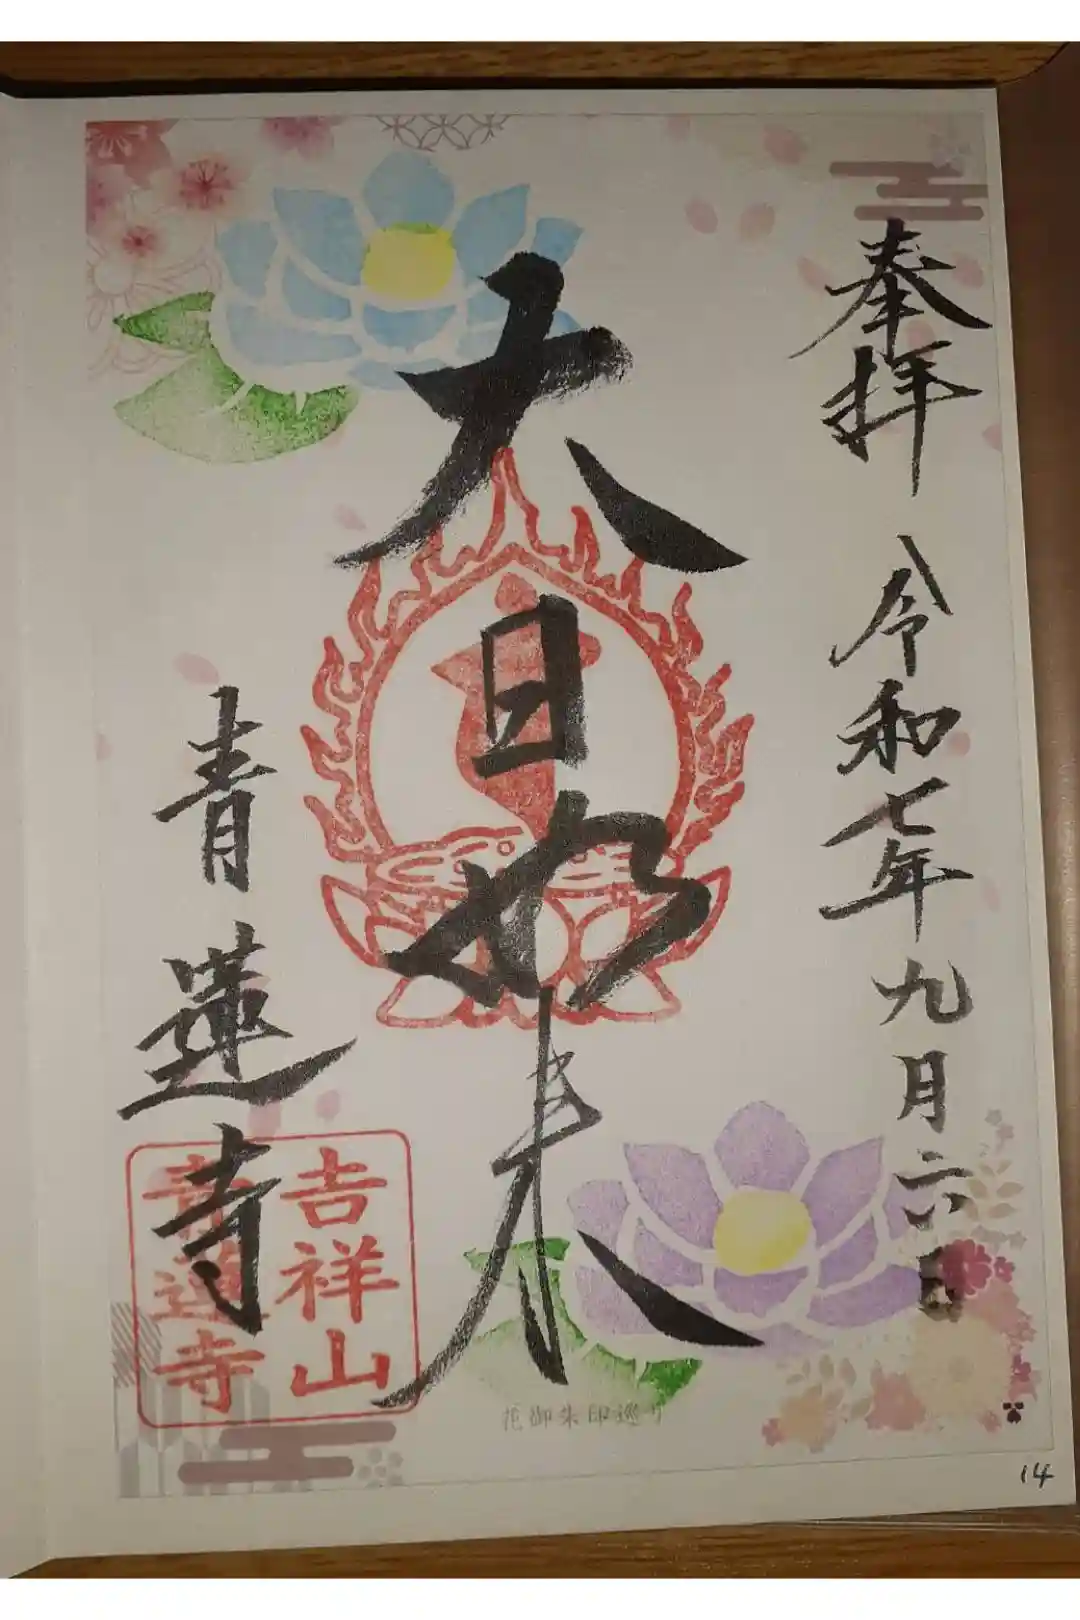 奉拝 令和七年九月六日
大日如来
青蓮寺
吉祥山
青蓮寺
花御朱印巡り
14